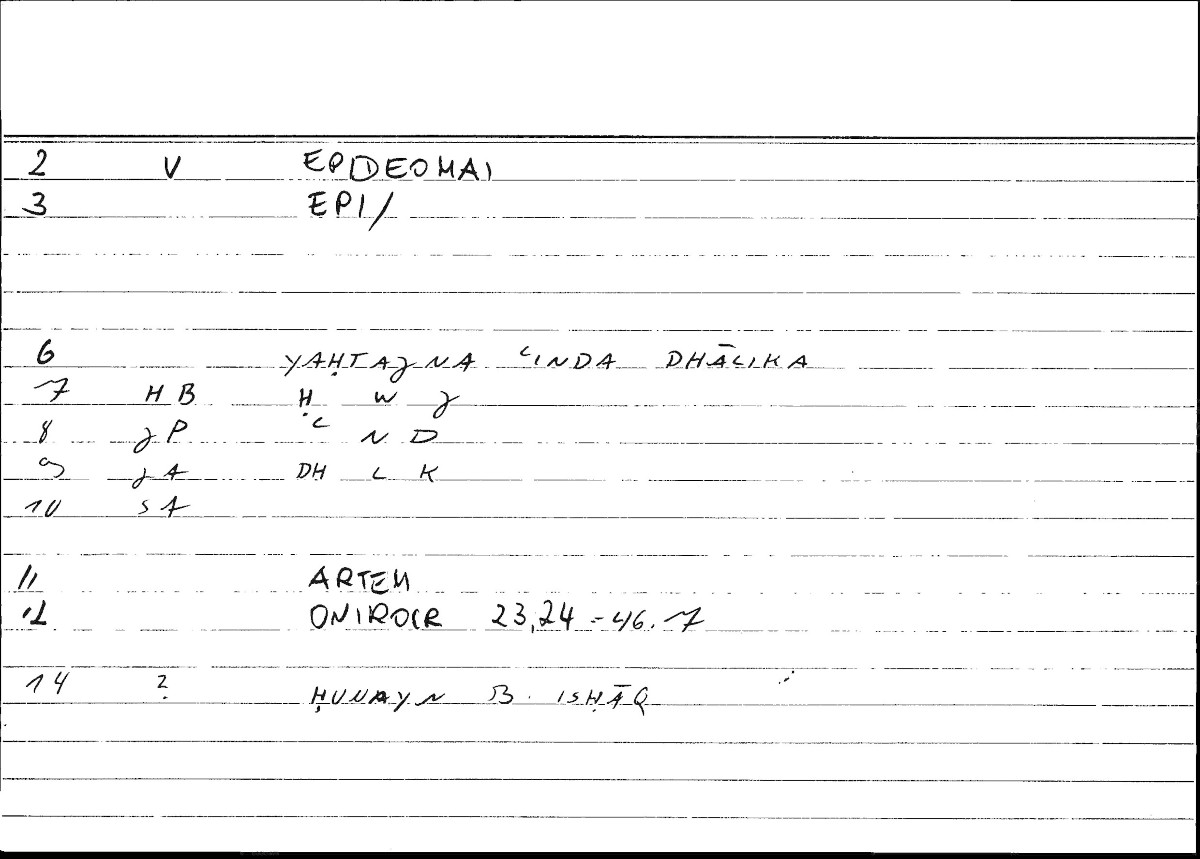 2 V EPIDEOMAI
3 EPI/
6 YAḤTAJNA ʿINDA DHĀLIKA
7 HB Ḥ W J
8 JP ʿ N D
9 JA DH L K
10 SA
11 ARTEM
12 ONIROCR 23,24 - 46.7
14 ? ḤUNAYN B. ISḤĀQ